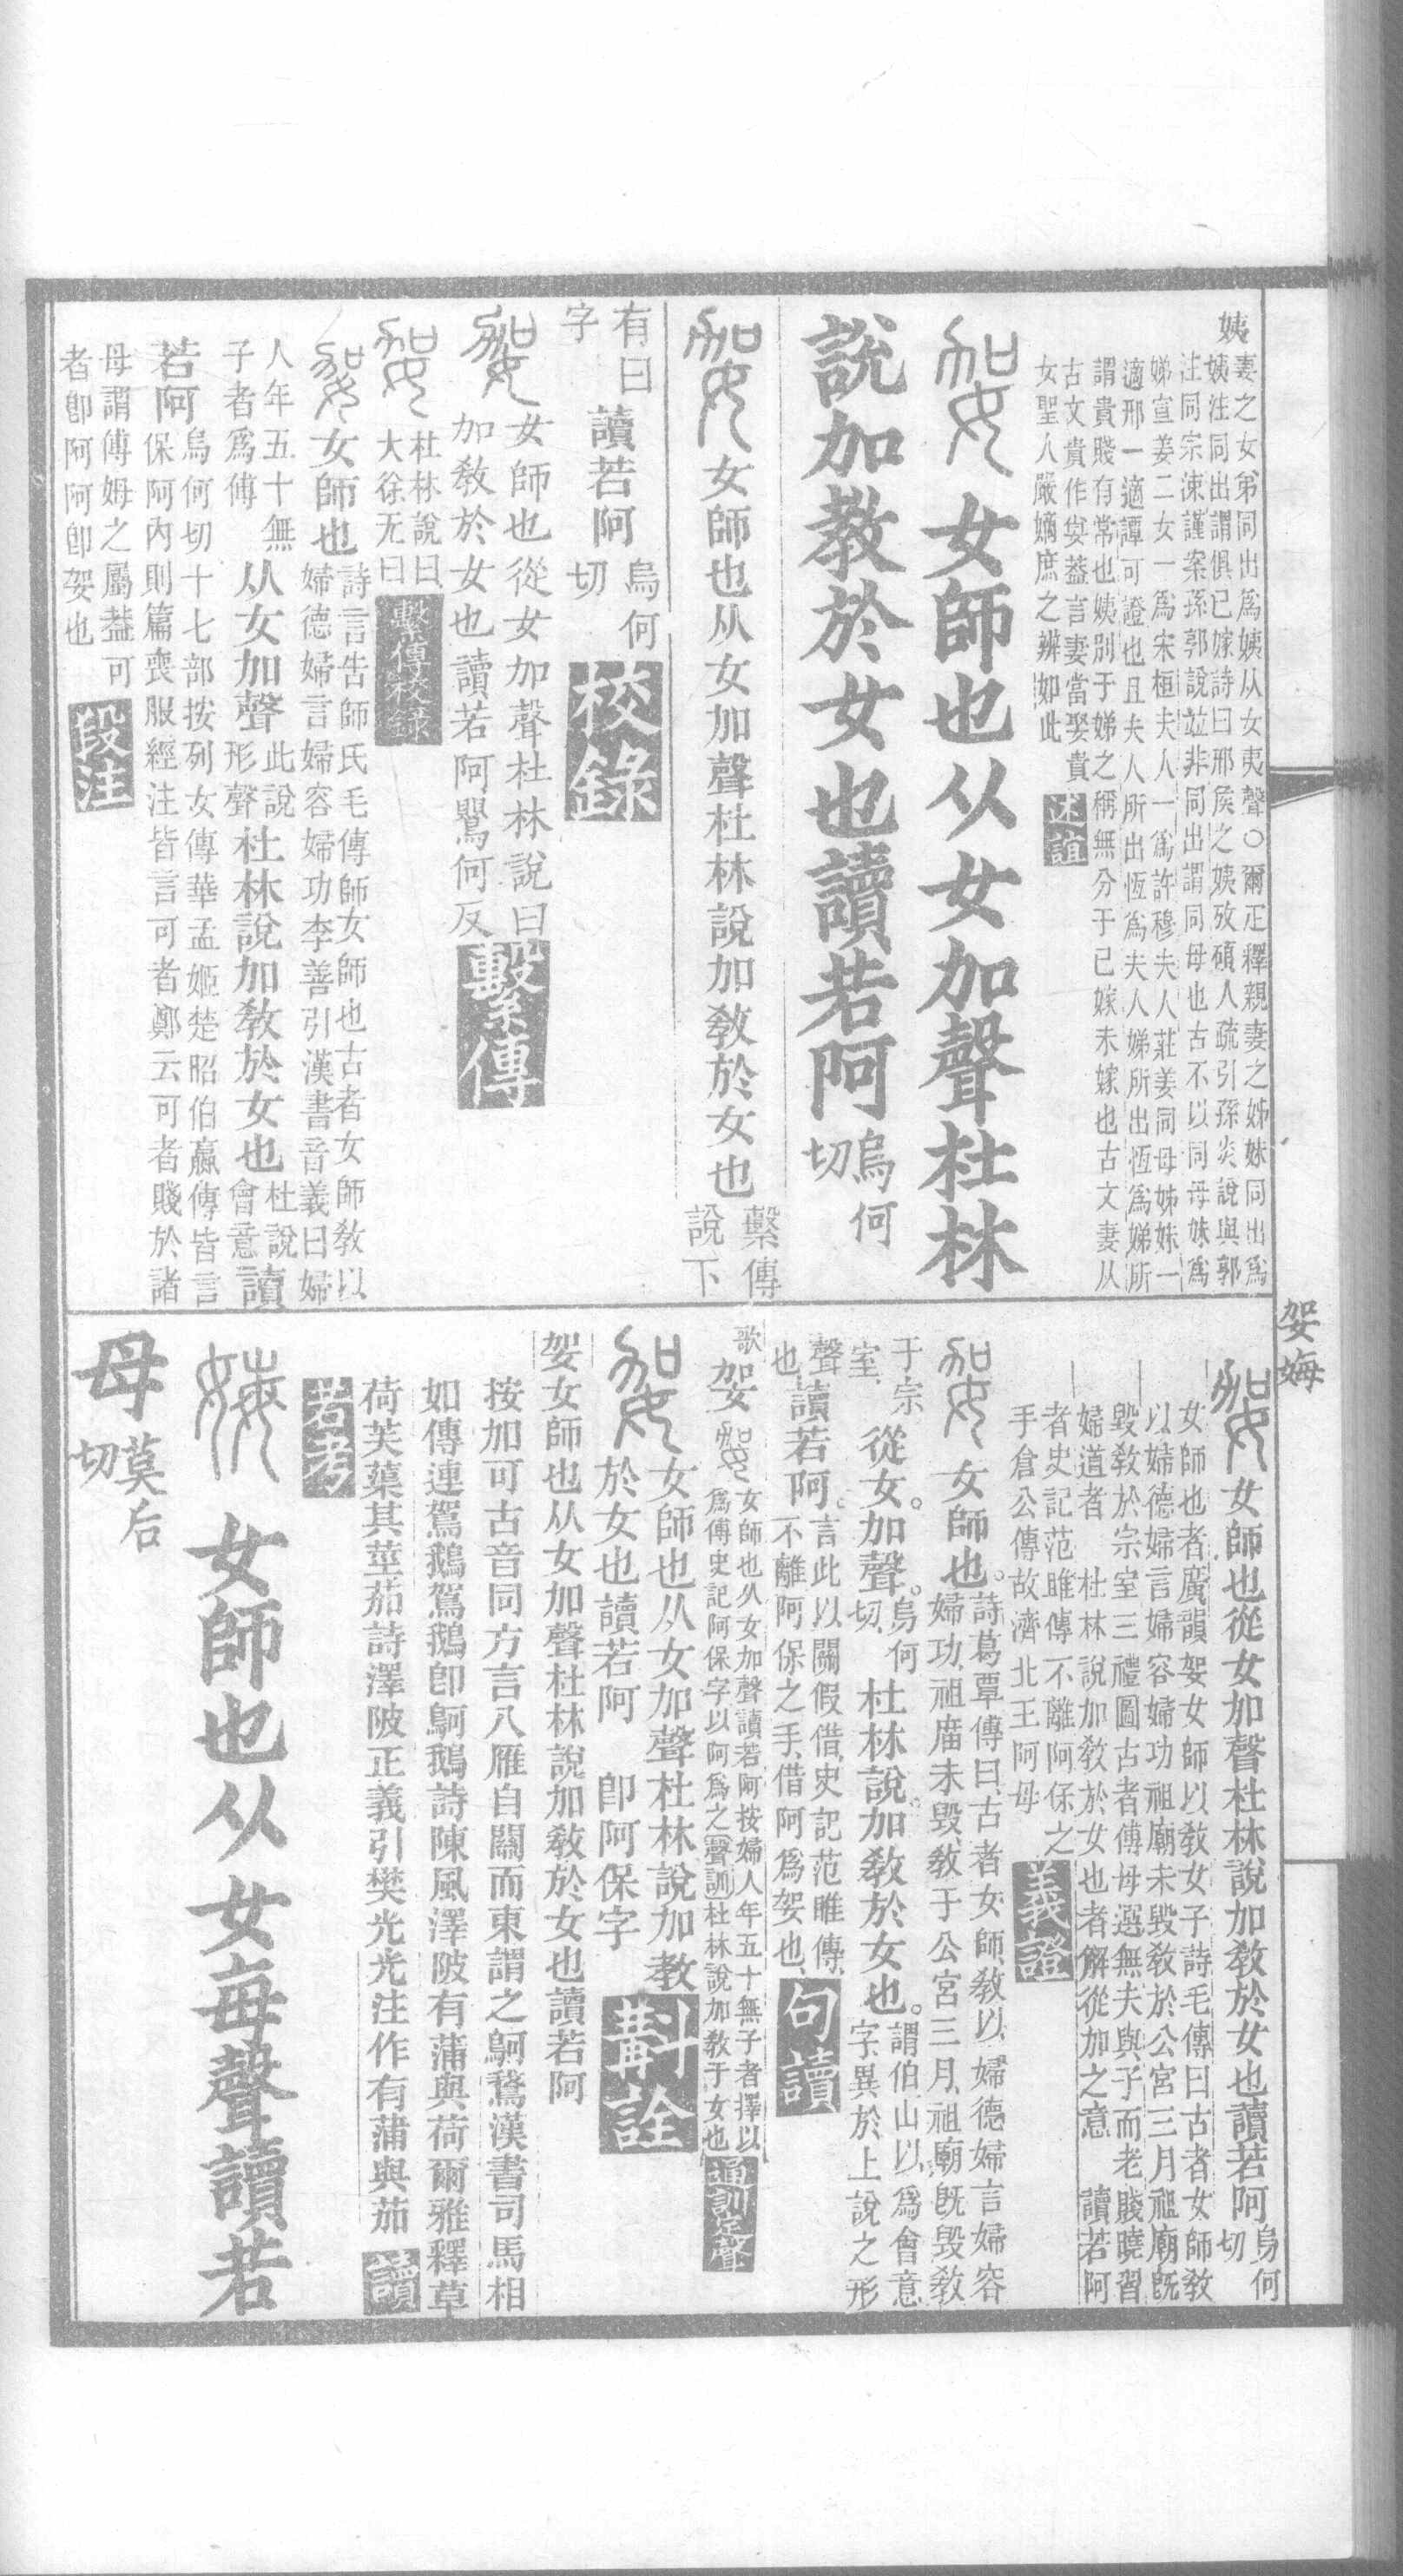 姨妻之女弟同出爲姨从女夷聲○爾疋釋親妻之姊妹同出爲
姨注同出謂俱已嫁詩曰邢矦之姨攷碩人疏引孫炎說與郭
注同宗涑謹案孫郭說竝非同出謂同母也古不以同母妹爲
娣宣姜二女一爲宋桓夫人一爲許穆夫人莊姜同母姊妹一
適邢一適譚可證也且夫人所出恆爲夫人娣所出恆爲娣所
謂貴賤有常也姨別于娣之稱無分于已嫁未嫁也古文妻从
古文貴作㚣葢言妻當娶貴
女聖人嚴嫡庶之辨如此
述誼
女師也从女加聲杜林
說加教於女也讀若阿烏何切
女師也从女加聲杜林說加敎於女也繫傳說下
有曰字讀若阿烏何切
校錄
女師也從女加聲杜林說曰
加敎於女也讀若阿鷽何反
繫傳
杜林說曰
大徐无曰
繫傳校錄
女師也詩言告師氏毛傳師女師也古者女師敎以
婦德婦言婦容婦功李善引漢書音義曰婦
人年五十無子者爲傅从女加聲此說形聲杜林說加敎於女也杜說會意讀
若阿烏何切十七部按列女傳華孟姬楚昭伯嬴傳皆言
保阿內則篇喪服經注皆言可者鄭云可者賤於諸
母謂傅姆之屬葢可
者卽阿阿卽妿也
段注
妿 娒
女師也從女加聲杜林說加敎於女也讀若阿烏何切
女師也者廣韻妿女師以敎女子詩毛傳曰古者女師敎
以婦德婦言婦容婦功祖廟未毀敎於公宮三月祖廟旣
毀敎於宗室三禮圖古者傅母選無夫與子而老賤曉習
婦道者 杜林說加敎於女也者解從加之意 讀若阿
者史記范睢傳不離阿保之
手倉公傳故濟北王阿母
義證
女師也。詩葛覃傳曰、古者女師、敎以、婦德婦言婦容
婦功、祖廟未毀、敎于公宮三月、祖廟旣毀、敎
于宗室、從女。加聲。烏何切、杜林說。加敎於女也。謂伯山以爲會意
字、異於上說之形
聲也、讀若阿。言此以關假借、史記范睢傳、
不離阿保之手、借阿爲妿也、
句讀
歌妿女師也从女加聲讀若阿按婦人年五十無子者擇以
爲傅史記阿保字以阿爲之聲訓杜林說加敎于女也
通訓定聲
女師也从女加聲杜林說加教
於女也讀若阿 卽阿保字
斠詮
妿女師也从女加聲杜林說加敎於女也讀若阿
按加可古音同方言八雁自關而東謂之鴚䳘漢書司馬相
如傳連駕鵝駕鵝卽鴚鵝詩陳風澤陂有蒲與荷爾雅釋草
荷芙蕖其莖茄詩澤陂正義引樊光光注作有蒲與茄
讀
若考
女師也从女每聲讀若
母莫后切